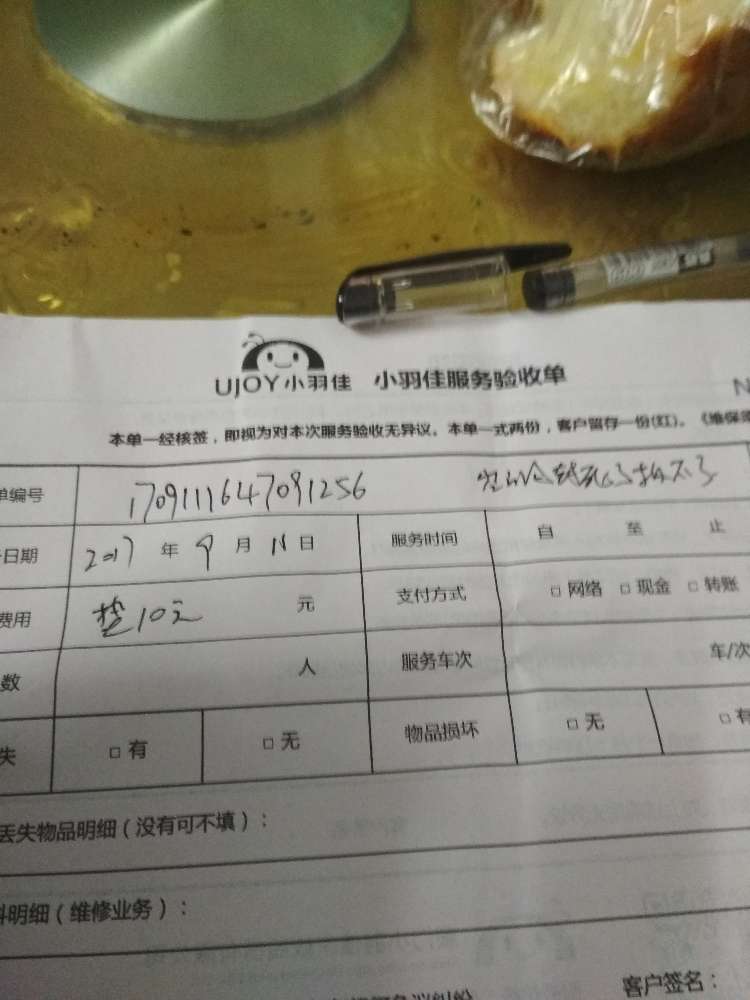 UJOY小羽佳 小羽佳服务验收单
N
本单一经核签，即视为对本次服务验收无异议。本单一式两份，客户留存一份(红)。《维保
单编号 1709111647091256
日期 2017 年 9 月 日 服务时间 自 至 止
费用 10元 元 支付方式 □ 网络 □ 现金 □ 转账
数 人 服务车次 车/次
失 □ 有 □ 无 物品损坏 □ 无 □ 有
丢失物品明细（没有可不填）：
料明细（维修业务）：
客户签名：